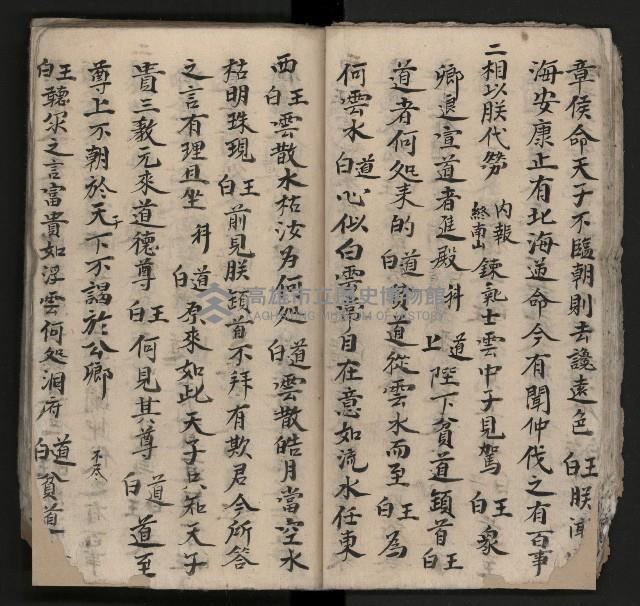 章侯命天子不臨朝則去讒遠色 白王 朕聞
海安康止有北海道命今有聞仲伐之有百事
二相以朕代勞 內報 終南山 鍊氣士雲中子見駕 白王 象
卿退宣道者進殿 科 上道 陛下貧道頓首 白王
道者何処來的 白道 貧道從雲水而至 白王 為
何雲水 白道 心似白雲常自在意如流水任東
西 白王 雲散水枯汝为何処 白道 雲散皓月當空水
枯明珠現 白王 前見朕頓首不拜有欺君今所答
之言有理且坐 科 白道 原來如此天子只知天子
貴三教元來道德尊 白王 何見其尊 白道 道至
尊上不朝於天子下不謁於公卿 不尽
白王 聽尔之言富貴如浮雲何処洞府 白道 貧道
高雄市立歷史博物館
KAOHSIUNG MUSEUM OF HISTORY